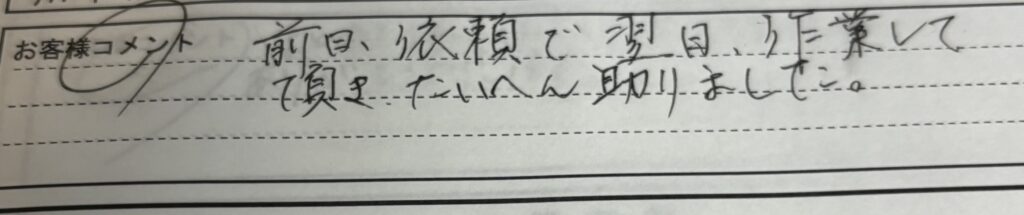 お客様コメント
前日、依頼で翌日、作業して
頂き たいへん助りました。